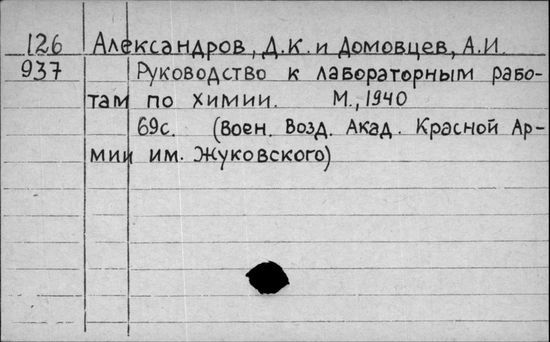 126 Александров, Д.К. и Домовцев, А.И.
937 Руководство к лабораторным рабо-
там по химии. М., 1940
69с. (Воен. Возд. Акад. Красной Ар-
мии им. Жуковского)